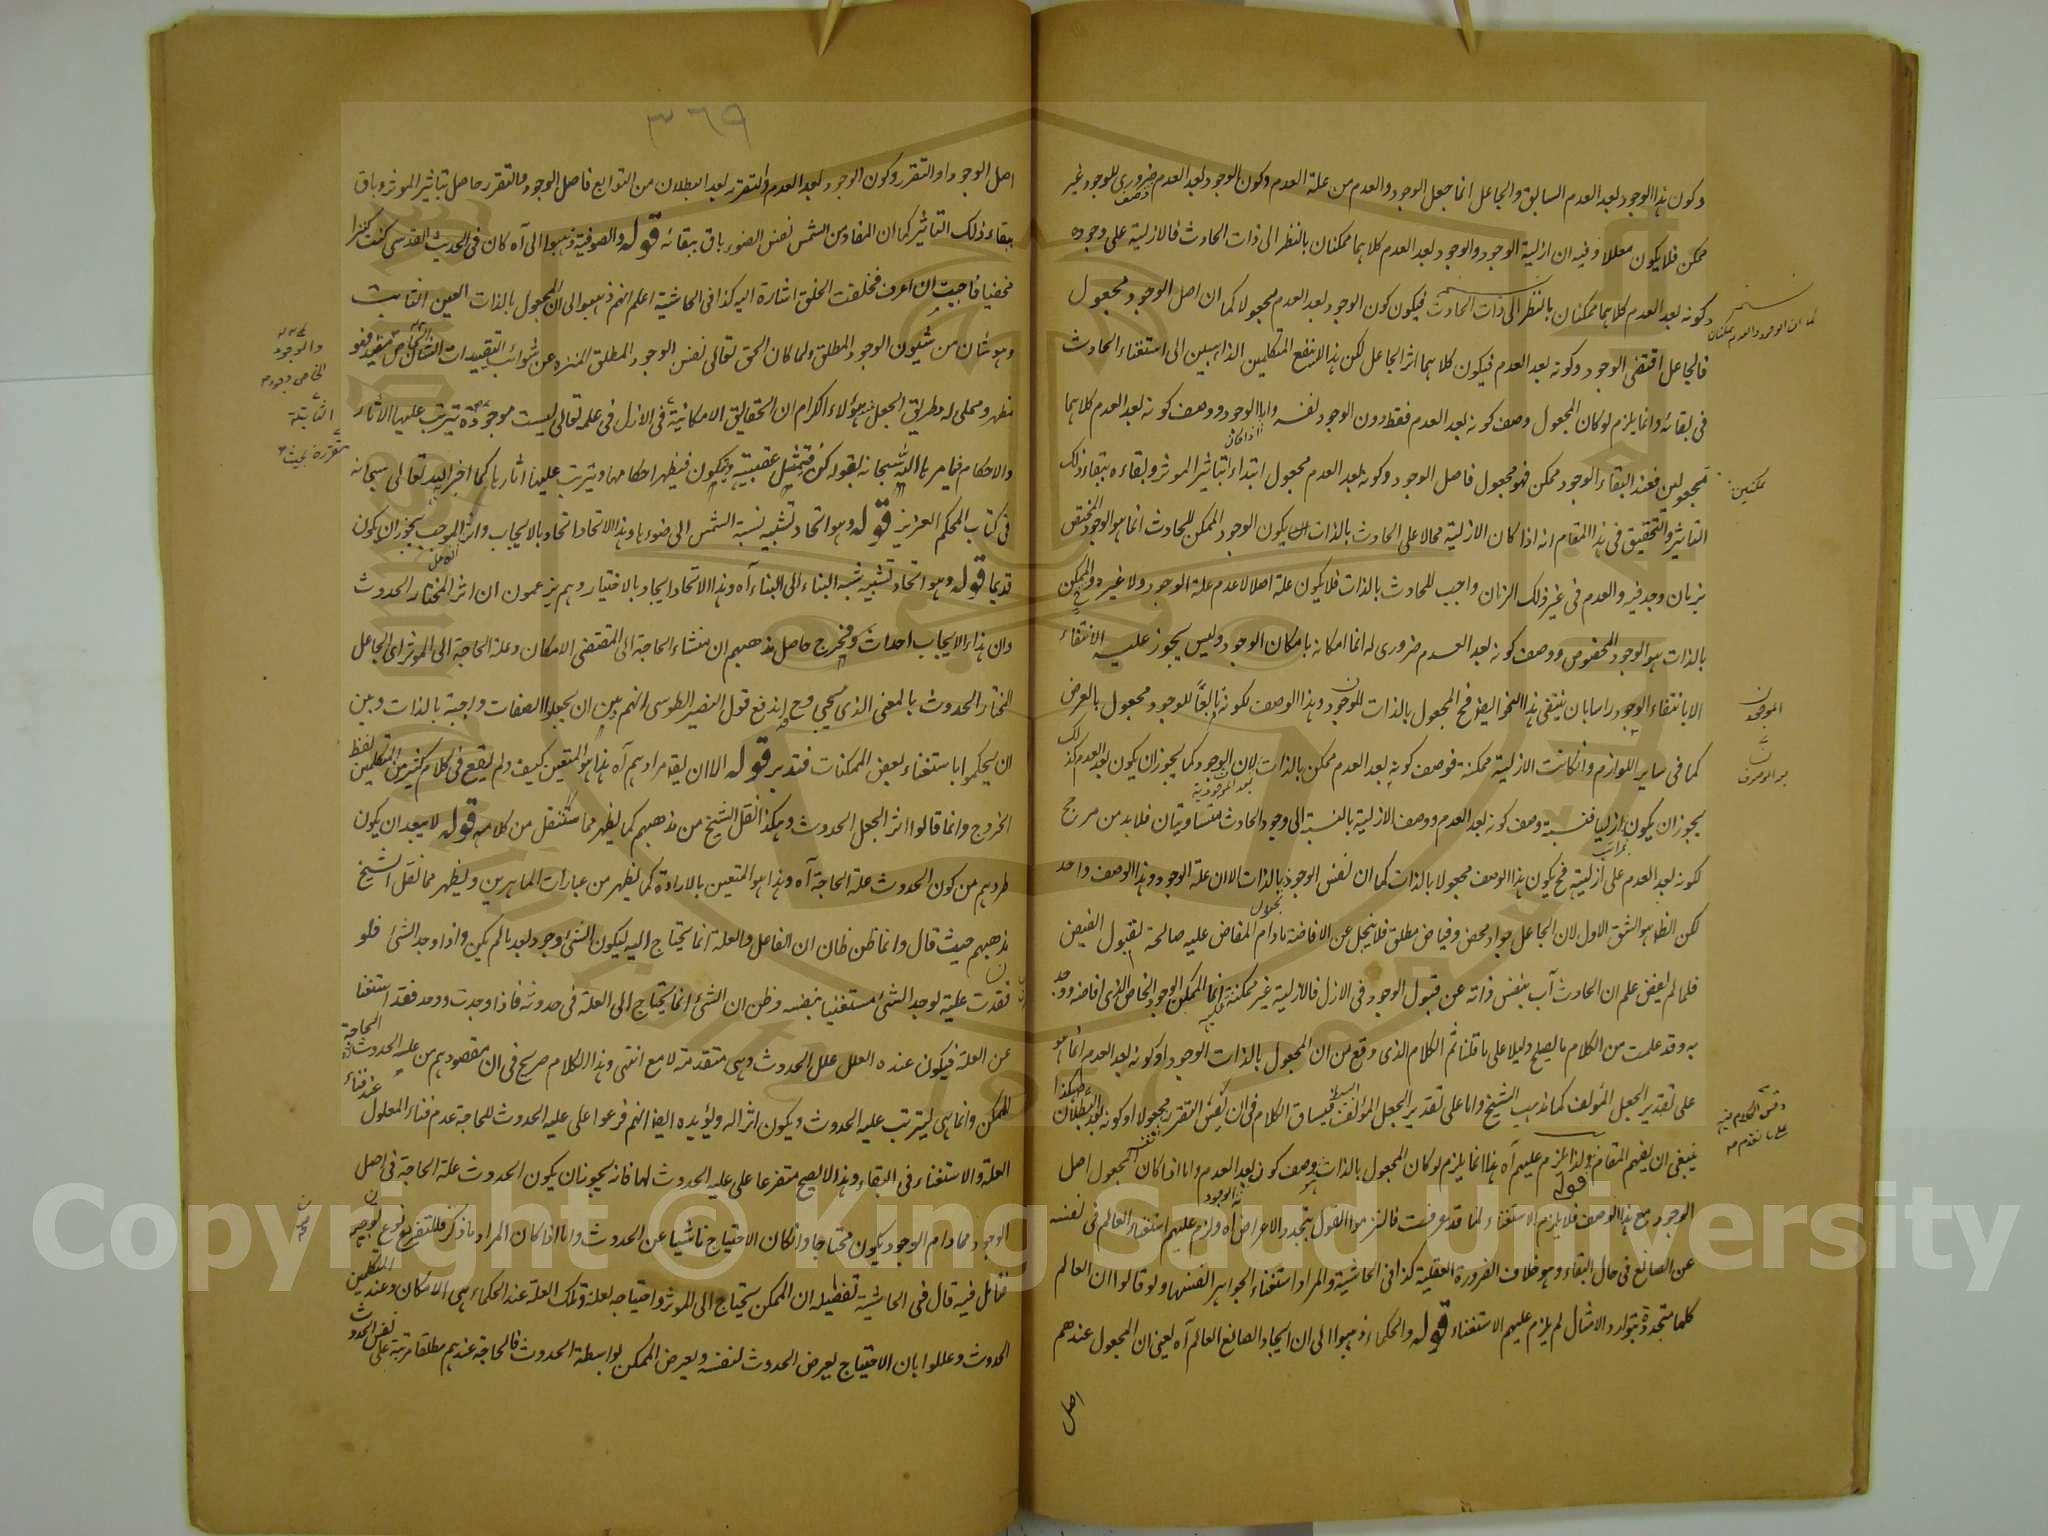 وكون هذا الوجود بعد العدم السابق والجاعل انما جعل الوجود والعدم من علة العدم وكون الوجود بعد العدم ضروري للوجود غير
وصف
ممكن فلا يكون معللا وفيه ان ازلية الوجود والوجود بعد العدم كلاهما ممكنان بالنظر الى ذات الحادث فالازلية على وجوده
وكونه بعد العدم كلاهما ممكنان بالنظر الى ذات الحادث فيكون كون الوجود بعد العدم مجعولا كما ان اصل الوجود مجعول
كما ان الوجود والعدم ممكنان
فالجاعل اقتضى الوجود وكونه بعد العدم فيكون كلاهما اثر الجاعل لكن هذا لا ينفع المتكلمين الذاهبين الى استغناء الحادث
في بقائه وانما يلزم لو كان المجعول وصف كونه بعد العدم فقط دون الوجود نفسه واما الوجود ووصف كونه بعد العدم كلاهما
اذا كان
مجعولين فعند البقاء الوجود ممكن فهو مجعول فاصل الوجود وكونه بعد العدم مجعول ابتداء بتاثير الموثر وبقاءه ببقاء ذلك
ممكنين
التاثير والتحقيق في هذا المقام انه اذا كان الازلية محالا على الحادث بالذات يكون الوجود الممكن للحادث انما هو الوجود المختص
بزمان وجد فيه والعدم في غير ذلك الزمان واجب للحادث بالذات فلا يكون علة اصلا لا عدم علة الوجود ولا غيره والممكن
بالذات هو الوجود المخصوص ووصف كونه بعد العدم ضروري له انما امكانه بامكان الوجود وليس يجوز عليه الانتفاء
الا بانتفاء الوجود راسا بان ينتفي هذا النحو ايضا فح المجعول بالذات الوجود وهذا الوصف لكونه تابعا للوجود مجعول بالعرض
كما في ساير اللوازم وان كانت الازلية ممكنة فوصف كونه بعد العدم ممكن بالذات لان الوجود كما يجوز ان يكون بعد العدم كذلك
هو الموصوف
يجوز ان يكون ازليا فنسبة وصف كونه بعد العدم ووصف الازلية بالنسبة الى وجود الحادث متساويتان فلا بد من مرجح
لكونه بعد العدم على ازليته فح يكون هذا الوصف مجعولا بالذات كما ان نفس الوجود بالذات الا ان علة الوجود وهذا الوصف واحد
لكن الظ هو الشق الاول لان الجاعل جواد محض وفياض مطلق فلا يبخل عن الافاضة ما دام المفاض عليه صالحة لقبول الفيض
فلما لم يفض علم ان الحادث آب بنفس ذاته عن قبول الوجود في الازل فالازلية غير ممكنة عليه انما الممكن الوجود الخاص الذي افاضه ووجد
به وقد علمت من الكلام ما يصلح دليلا على ما قلنا ثم الكلام الذي وقع من ان المجعول بالذات الوجود او كونه بعد العدم انما هو
على تقدير الجعل المؤلف كما مذهب الشيخ واما على تقدير الجعل البسيط فيساق الكلام في ان نفس التقرر مجعولا او كونه بعد البطلان هكذا
ينبغي ان يفهم المقام قوله ولذا يلزم عليهم آه هذا انما يلزم لو كان المجعول بالذات وصف كون بعد العدم واما اذا كان المجعول اصل
الوجود مع هذا الوصف فلا يلزم الاستغناء لما قد عرفت فالتزموا القول بتجدد الاعراض آه ولزم عليهم استغناء العالم في نفسه
عن الصانع في حال البقاء وهو خلاف الضرورة العقلية كذا في الحاشية والمراد استغناء الجواهر انفسها ولو قالوا ان العالم
كلها متجددة بتوارد الامثال لم يلزم عليهم الاستغناء قوله والحكماء ذهبوا الى ان ايجاد الصانع العالم آه يعني ان المجعول عندهم
اصل
٣٦٩
اصل الوجود او التقرر وكون الوجود بعد العدم والتقرر بعد البطلان من التوابع فاصل الوجود والتقرر حاصل بتاثير الموثر وباق
ببقاء ذلك التاثير كما ان المفاد من الشمس نفس الضوء باق ببقائه قوله والصوفية ذهبوا الى آه كان في الحديث القدسي كنت كنزا
مخفيا فاحببت ان اعرف فخلقت الخلق اشارة اليه كذا في الحاشية اعلم انهم ذهبوا الى ان المجعول بالذات العين الثابت
وهو شان من شيون الوجود المطلق ولما كان الحق تعالى نفس الوجود المطلق المنزه عن شوائب التقييدات الشان الخاص متقيد فهو
والوجود الخاص وجوده
مظهر ومجلى له وطريق الجعل عند هؤلاء الكرام ان الحقايق الامكانية في الازل في علمه تعالى ليست موجودة يترتب عليها الآثار
الثابتة
والاحكام فيامرها الله سبحانه بقوله كن فتمتثل عقيبه وتكون فيظهر احكامها ويترتب عليها اثارها كما اخبر الله تعالى سبحانه
في كتاب المحكم العزيز قوله وهو اتحاد تشبيه نسبة الشمس الى ضوءها وهذا الاتحاد اتحاد بالايجاب واثر الموجب يجوز ان يكون
قديما قوله وهو اتحاد تشبيه نسبة البناء الى البناء آه وهذا الاتحاد ايجاد بالاختيار وهم يزعمون ان اثر الفاعل المختار الحدوث
وان هذا الايجاب احداث ومخرج حاصل مذهبهم ان منشاء الحاجة الى المقتضى الامكان وعلة الحاجة الى الموثر اي الجاعل
المختار الحدوث بالمعنى الذي سيجيء وح اندفع قول النصير الطوسي انهم بين ان يجعلوا الصفات واجبة بالذات وبين
ان يحكموا باستغناء بعض الممكنات فتدبر قوله الا ان يقه مرادهم آه هذا هو المتعين كيف ولم يقع في كلام كثير من المتكلمين لفظ
الخروج وانما قالوا اثر الجعل الحدوث وهكذا نقل الشيخ من مذهبهم كما يظهر مما سننقل من كلامه قوله لا يبعد ان يكون
مرادهم من كون الحدوث علة الحاجة آه وهذا هو المتعين بالارادة كما يظهر من عبارات الماهرين ويظهر مما نقل الشيخ
مذهبهم حيث قال وانما ظن ظان ان الفاعل والعلة انما يحتاج اليه ليكون الشئ وجود بعد ما لم يكن واذا وجد الشئ فلو
فقدت علية لوجد الشئ مستغنيا بنفسه وظن ان الشئ انما يحتاج الى العلة في حدوثه فاذا وجدت ووجد فقد استغنا
عن العلة فيكون عنده العلل علل الحدوث وهي متقدمة لا مع انتهى وهذا الكلام صريح في ان مقصودهم من علية الحدوث الحاجة
للممكن وانما هي ليترتب عليه الحدوث ويكون اثرا له ويؤيده ايضا انهم فرعوا على علية الحدوث للحاجة عدم فناء المعلول عند فناء
العلة والاستغناء في البقاء وهذا لا يصح متفرعا على علية الحدوث لها فانه يجوز ان يكون الحدوث علة الحاجة في اصل
الوجود فما دام الوجود يكون محتاجا وان كان الاحتياج ناشيا عن الحدوث واما اذا كان المراد ما ذكر فللتفريع نوع توجيه
فتامل فيه قال في الحاشية تفصيله ان الممكن يحتاج الى الموثر واحتياجه لعلة وتلك العلة عند الحكماء هي الامكان وعند المتكلمين
الحدوث وعللوا بان الاحتياج يعرض الحدوث لنفسه ويعرض الممكن بواسطة الحدوث فالحاجة عندهم مطلقا مرتبة على نفس الحدوث